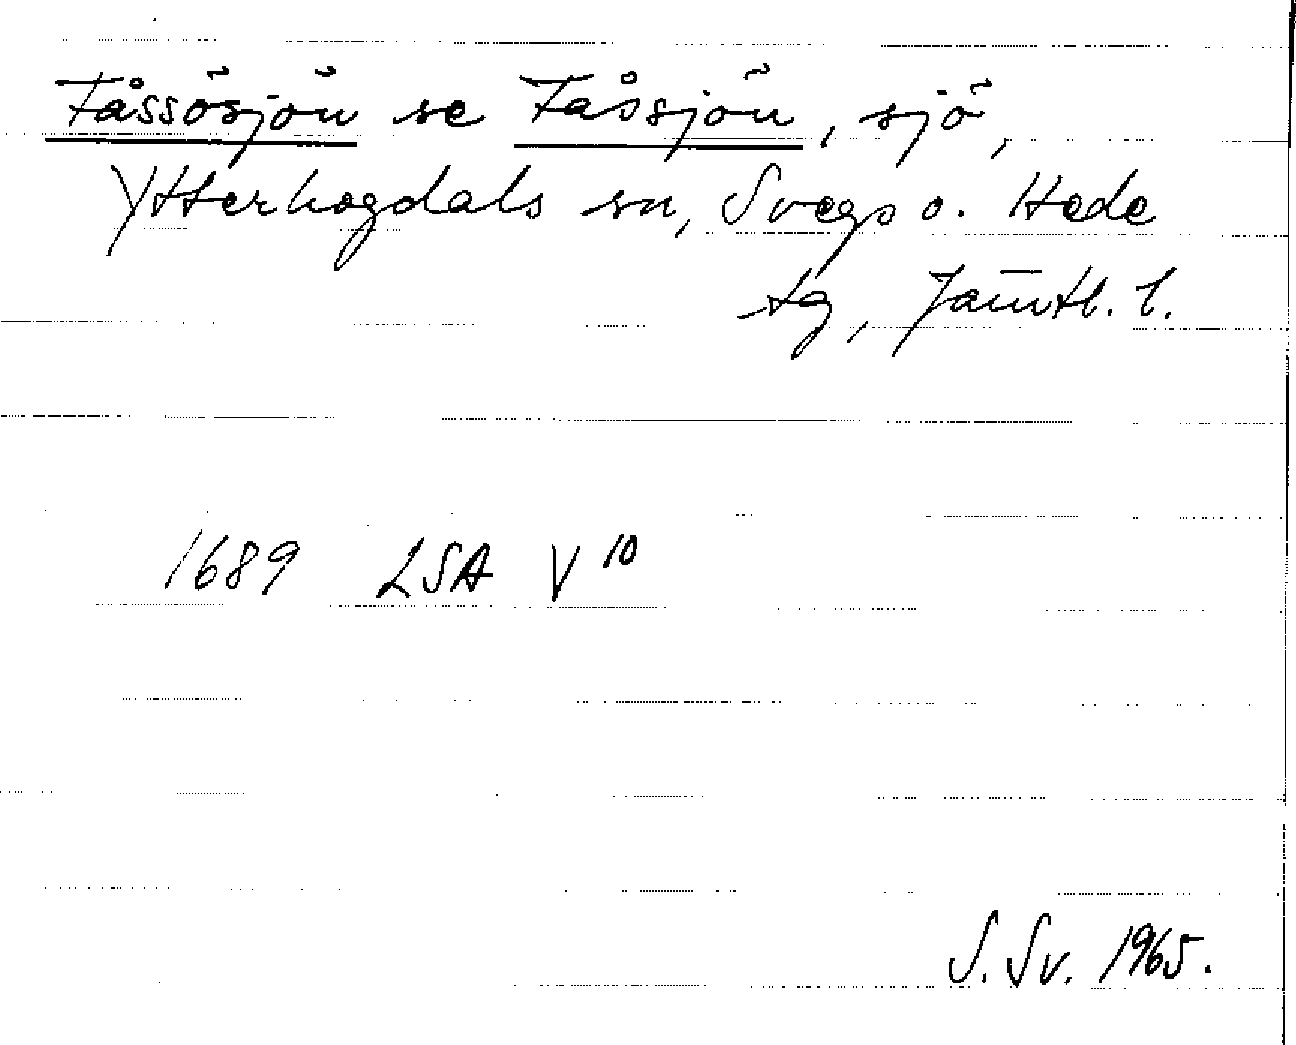 Fåssösjön se Fåssjön, sjö,
Ytterhogdals sn, Svegs o. Hede
tg, Jämtl. l.
1689 LSA V 10
S. Sv. 1965.